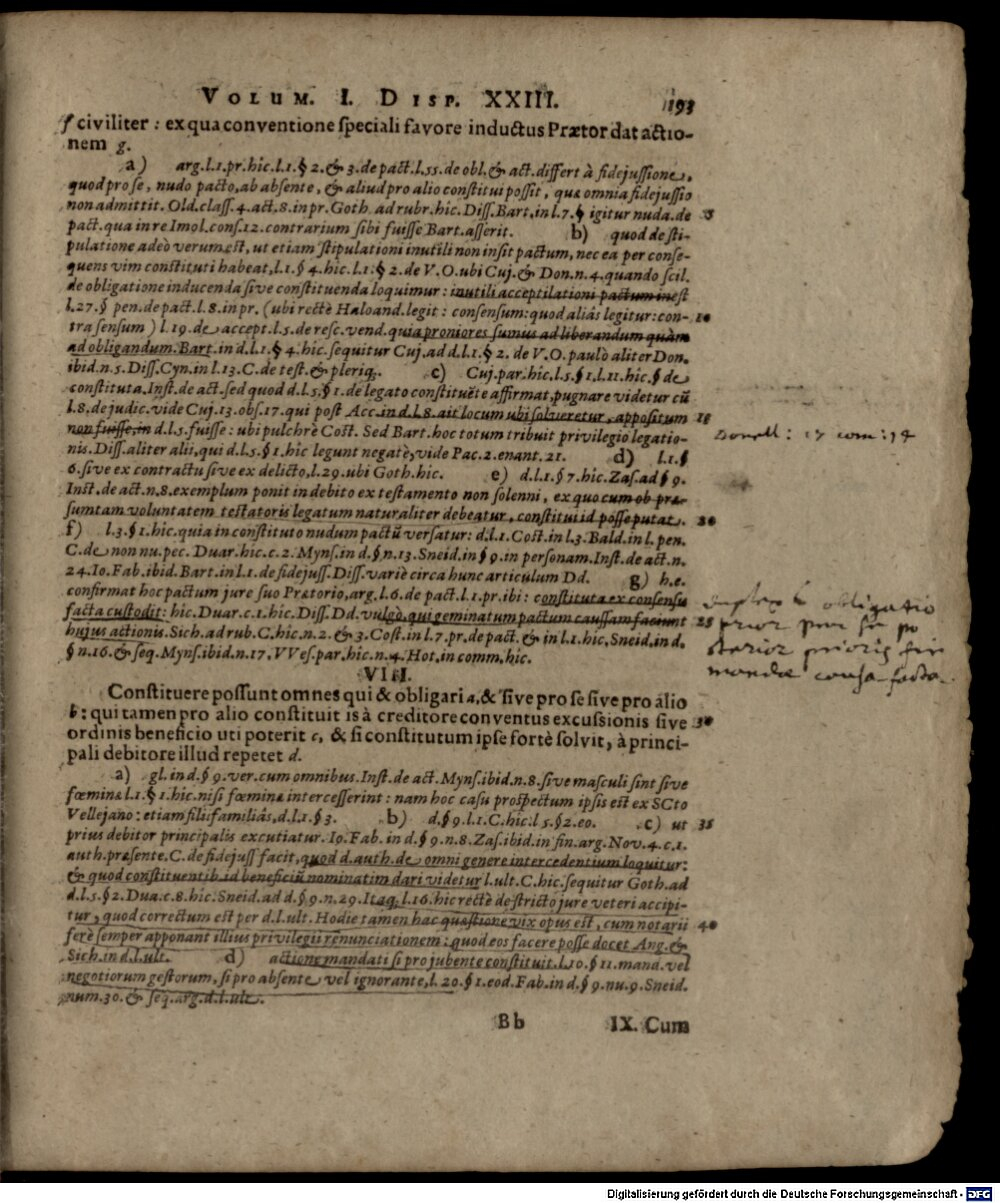 VOLUM. I. DISP. XXIII. 193
f civiliter : ex qua conventione speciali favore inductus Prætor dat actio-
nem g.
a) arg.l.1.pr.hic.l.1.§ 2.& 3.de pact.l.55.de obl.& act.differt à fidejussione,
quod pro se, nudo pacto, ab absente, & aliud pro alio constitui possit, quæ omnia fidejussio
non admittit. Old.class.4.act.8.in pr. Goth. ad rubr.hic. Diss. Bart. in l.7.§ igitur nuda.de 5
pact. qua in re Imol.cons.12.contrarium sibi fuisse Bart.asserit. b) quod de sti-
pulatione adeò verum est, ut etiam stipulationi inutili non insit pactum, nec ea per conse-
quens vim constituti habeat, l.1.§ 4.hic.l.1.§ 2.de V.O.ubi Cuj.& Don.n.4.quando scil.
de obligatione inducenda sive constituenda loquimur: inutili acceptilationi pactum inest
l.27.§ pen.de pact.l.8.in pr. (ubi rectè Haloand.legit : consensum: quod aliàs legitur: con- 10
tra sensum ) l.19.de accept.l.5.de resc.vend.quia proniores sumus ad liberandum quàm
ad obligandum. Bart.in d.l.1.§ 4.hic.sequitur Cuj.ad d.l.1.§ 2. de V.O.paulò aliter Don.
ibid.n.5.Diss.Cyn.in l.13.C.de test.& pleriq;. c) Cuj.par.hic.l.5.§ 1.l.11.hic.§ de
constituta.Inst.de act.sed quod d.l.5.§ 1.de legato constituẽte affirmat, pugnare videtur cũ
l.8.de judic.vide Cuj.13.obs.17.qui post Acc.in d.l.8.ait locum ubi solveretur, appositum 15
non fuisse, in d.l.5.fuisse : ubi pulchrè Cost. Sed Bart.hoc totum tribuit privilegio legatio-
nis.Diss.aliter alii, qui d.l.5.§ 1.hic legunt negatè, vide Pac.2.enant.21. d) l.1.§
6.sive ex contractu sive ex delicto, l.29.ubi Goth.hic. e) d.l.1.§ 7.hic.Zas.ad § 9.
Inst.de act.n.8.exemplum ponit in debito ex testamento non solenni, ex quo cum ob præ-
sumtam voluntatem testatoris legatum naturaliter debeatur, constitui id posse putat. 20
f) l.3.§ 1.hic.quia in constituto nudum pactũ versatur: d.l.1.Cost.in l.3.Bald.in l.pen.
C.de non nu.pec. Duar.hic.c.2. Myns.in d.§.n.13.Sneid.in § 9.in personam.Inst.de act.n.
24.Io.Fab.ibid.Bart.in l.1.de fidejuss.Diss.variè circa hunc articulum Dd. g) h.e.
confirmat hoc pactum jure suo Prætorio, arg.l.6.de pact.l.1.pr.ibi: constituta ex consensu
facta custodit: hic.Duar.c.1.hic.Diss.Dd.vulgò, qui geminatum pactum caussam faciunt 25
hujus actionis.Sich.ad rub.C.hic.n.2.& 3.Cost.in l.7.pr.de pact.& in l.1.hic,Sneid.in d.
§ n.16.& seq.Myns.ibid.n.17.VVes.par.hic.n.4.Hot.in comm.hic.
VIII.
Constituere possunt omnes qui & obligari a, & sive pro se sive pro alio
b : qui tamen pro alio constituit is à creditore conventus excussionis sive 30
ordinis beneficio uti poterit c, & si constitutum ipse fortè solvit, à princi-
pali debitore illud repetet d.
a) gl.in d.§ 9.ver.cum omnibus.Inst.de act.Myns.ibid.n.8.sive masculi sint sive
fœminæ l.1.§ 1.hic.nisi fœminæ intercesserint : nam hoc casu prospectum ipsis est ex SCto
Vellejano : etiam filifamiliâs, d.l.1.§ 3. b) d.§ 9.l.1.C.hic.l 5.§ 2.eo. c) ut 35
prius debitor principalis excutiatur. Io.Fab. in d.§ 9.n.8.Zas.ibid.in fin.arg.Nov.4.c.1.
auth.præsente.C.de fidejuss facit, quod d.auth.de omni genere intercedentium loquitur:
& quod constituentib.id beneficiũ nominatim dari videtur l.ult.C.hic.sequitur Goth.ad
d.l.5.§ 2.Dua.c.8.hic.Sneid.ad d.§ 9.n.29.Itaq; l.16.hic rectè de stricto jure veteri accipi-
tur, quod correctum est per d.l.ult. Hodie tamen hac quæstione vix opus est, cum notarii 40
ferè semper apponant illius privilegii renunciationem : quod eos facere posse docet Ang.&
Sich.in d.l.ult. d) actione mandati si pro jubente constituit.l.10.§ 11.mand.vel
negotiorum gestorum, si pro absente vel ignorante, l.20.§ 1.eod.Fab.in d.§ 9.nu.9.Sneid.
num.30.& seq.arg.d.l.ult.
Bb IX. Cum
Donell: 17 com: 14
duplex e obligatio
prior per se po
sterior prioris fir
mandæ causa facta.
Digitalisierung gefördert durch die Deutsche Forschungsgemeinschaft - DFG